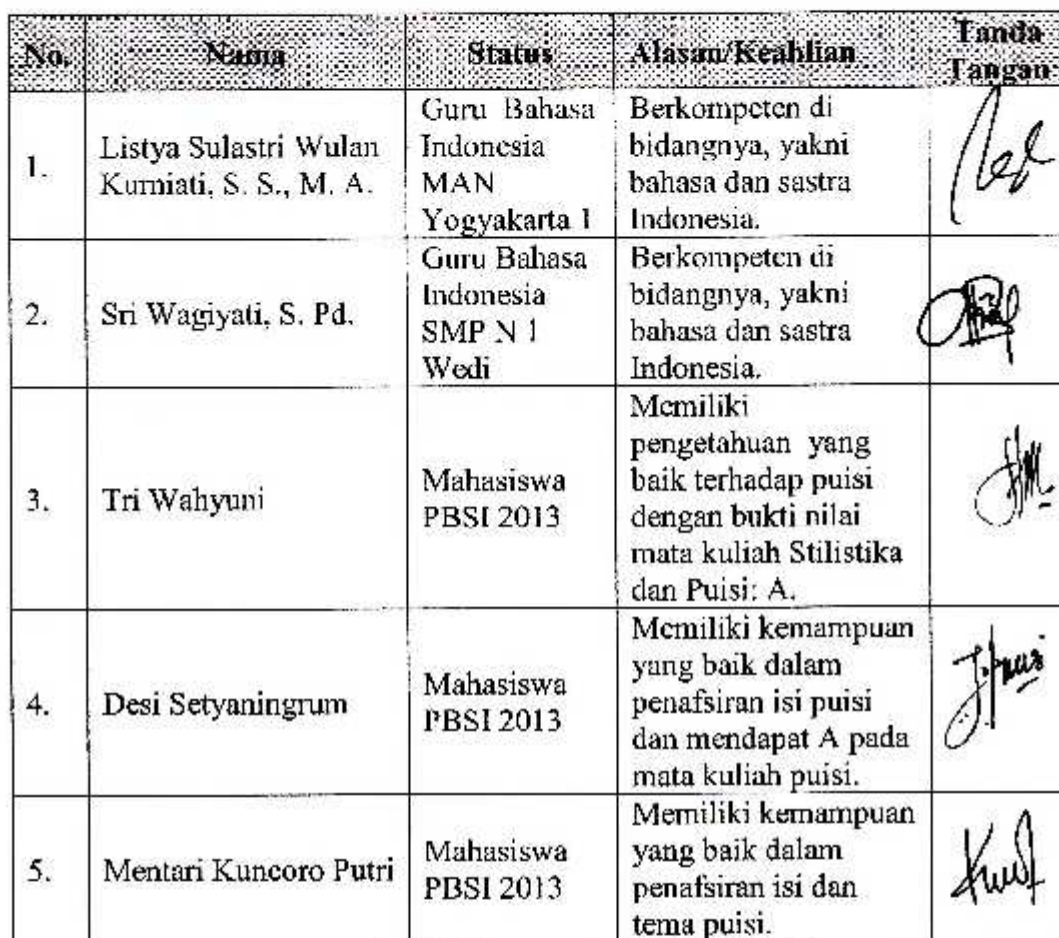 No. Nama Status Alasan/Keahlian Tanda Tangan
1.
Listya Sulastri Wulan
Kurniati, S. S., M. A.
Guru Bahasa
Indonesia
MAN
Yogyakarta 1
Berkompeten di
bidangnya, yakni
bahasa dan sastra
Indonesia.
2.
Sri Wagiyati, S. Pd.
Guru Bahasa
Indonesia
SMP N 1
Wedi
Berkompeten di
bidangnya, yakni
bahasa dan sastra
Indonesia.
3.
Tri Wahyuni
Mahasiswa
PBSI 2013
Memiliki
pengetahuan yang
baik terhadap puisi
dengan bukti nilai
mata kuliah Stilistika
dan Puisi: A.
4.
Desi Setyaningrum
Mahasiswa
PBSI 2013
Memiliki kemampuan
yang baik dalam
penafsiran isi puisi
dan mendapat A pada
mata kuliah puisi.
5.
Mentari Kuncoro Putri
Mahasiswa
PBSI 2013
Memiliki kemampuan
yang baik dalam
penafsiran isi dan
tema puisi.